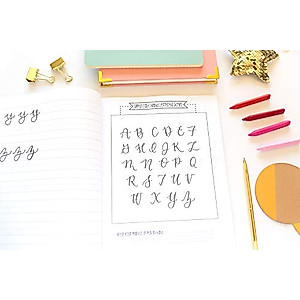 y y y
z z z
A B C D E F
G H I J K L
M N O P Q
R S T U V
W X Y Z